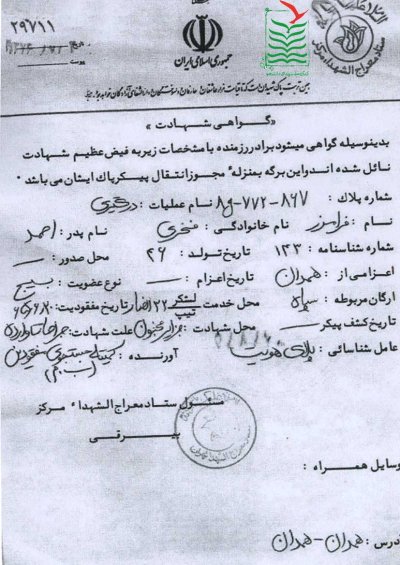 ۲۹۷۱۱
جمهوری اسلامی ایران
ستاد معراج الشهداء مرکز
«گواهی شهادت»
بدینوسیله گواهی میشود برادر رزمنده با مشخصات زیر به فیض عظیم شهادت
نائل شده اند و این برگه بمنزله مجوز انتقال پیکر پاک ایشان می باشد
شماره پلاک : ۸۶۷-۷۷۲-۸g نام عملیات : درگیری
نام : فرامرز نام خانوادگی : فخری نام پدر : احمد
شماره شناسنامه : ۱۲۳ تاریخ تولد : ۴۶ محل صدور : —
اعزامی از : همدان تاریخ اعزام : — نوع عضویت : بسیج
ارگان مربوطه : سپاه محل خدمت لشکر تیپ ۳۲ انصار تاریخ مفقودیت :
تاریخ کشف پیکر — محل شهادت : جزایر مجنون علت شهادت : جراحات وارده
عامل شناسائی : پلاک هویت آورنده : کمیته جستجوی مفقودین
مسئول ستاد معراج الشهداء مرکز
بیرقی
وسایل همراه :
آدرس : همدان - همدان